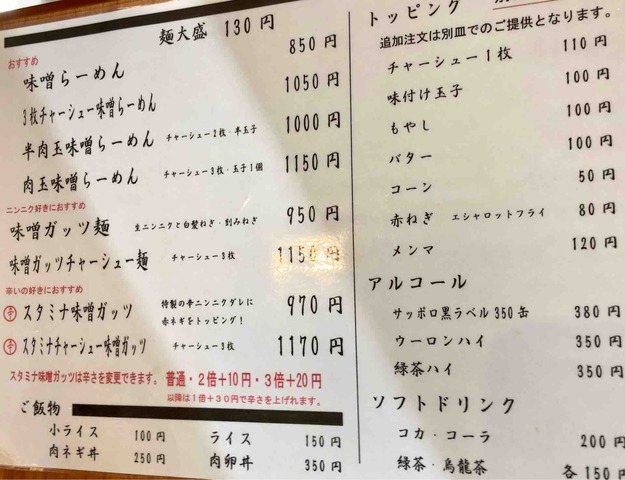 麺大盛 130円
おすすめ
味噌らーめん 850円
3枚チャーシュー味噌らーめん 1050円
半肉玉味噌らーめん チャーシュー2枚・半玉子 1000円
肉玉味噌らーめん チャーシュー3枚・玉子1個 1150円
ニンニク好きにおすすめ
味噌ガッツ麺 生ニンニクと白髪ねぎ・刻みねぎ 950円
味噌ガッツチャーシュー麺 チャーシュー3枚 1150円
辛いの好きにおすすめ
辛 スタミナ味噌ガッツ 特製の辛ニンニクダレに 970円
赤ネギをトッピング!
辛 スタミナチャーシュー味噌ガッツ チャーシュー3枚 1170円
スタミナ味噌ガッツは辛さを変更できます。 普通・2倍+10円・3倍+20円
以降は1倍+30円で辛さを上げれます。
ご飯物
小ライス 100円 ライス 150円
肉ネギ丼 250円 肉卵丼 350円
トッピング
追加注文は別皿でのご提供となります。
チャーシュー1枚 110円
味付け玉子 100円
もやし 100円
バター 100円
コーン 50円
赤ねぎ エシャロットフライ 80円
メンマ 120円
アルコール
サッポロ黒ラベル350缶 380円
ウーロンハイ 350円
緑茶ハイ 350円
ソフトドリンク
コカ・コーラ 200円
緑茶・烏龍茶 各150円